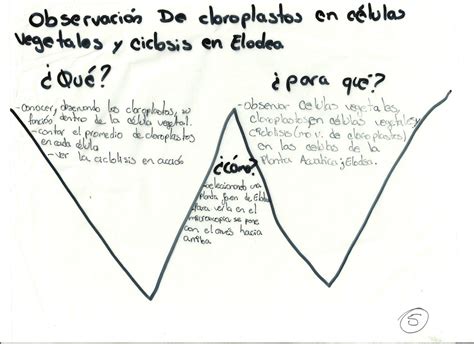 Observación De cloroplastos en células
vegetales y ciclosis en Elodea
¿Qué?
-conocer, observando los cloroplastos, su
función, dentro de la célula vegetal.
-contar el promedio de cloroplastos
en cada célula
-ver la en
¿para qué?
-observar celulas vegetales,
cloroplastos en células vegetales y
(mov. de cloroplastos)
en las celulas de la
Planta Acuatica; Elodea.
¿Cómo?
-seleccionando una
Planta joven de Elodea
para verla en el
microscopio se pone
con el envés hacia
arriba
5